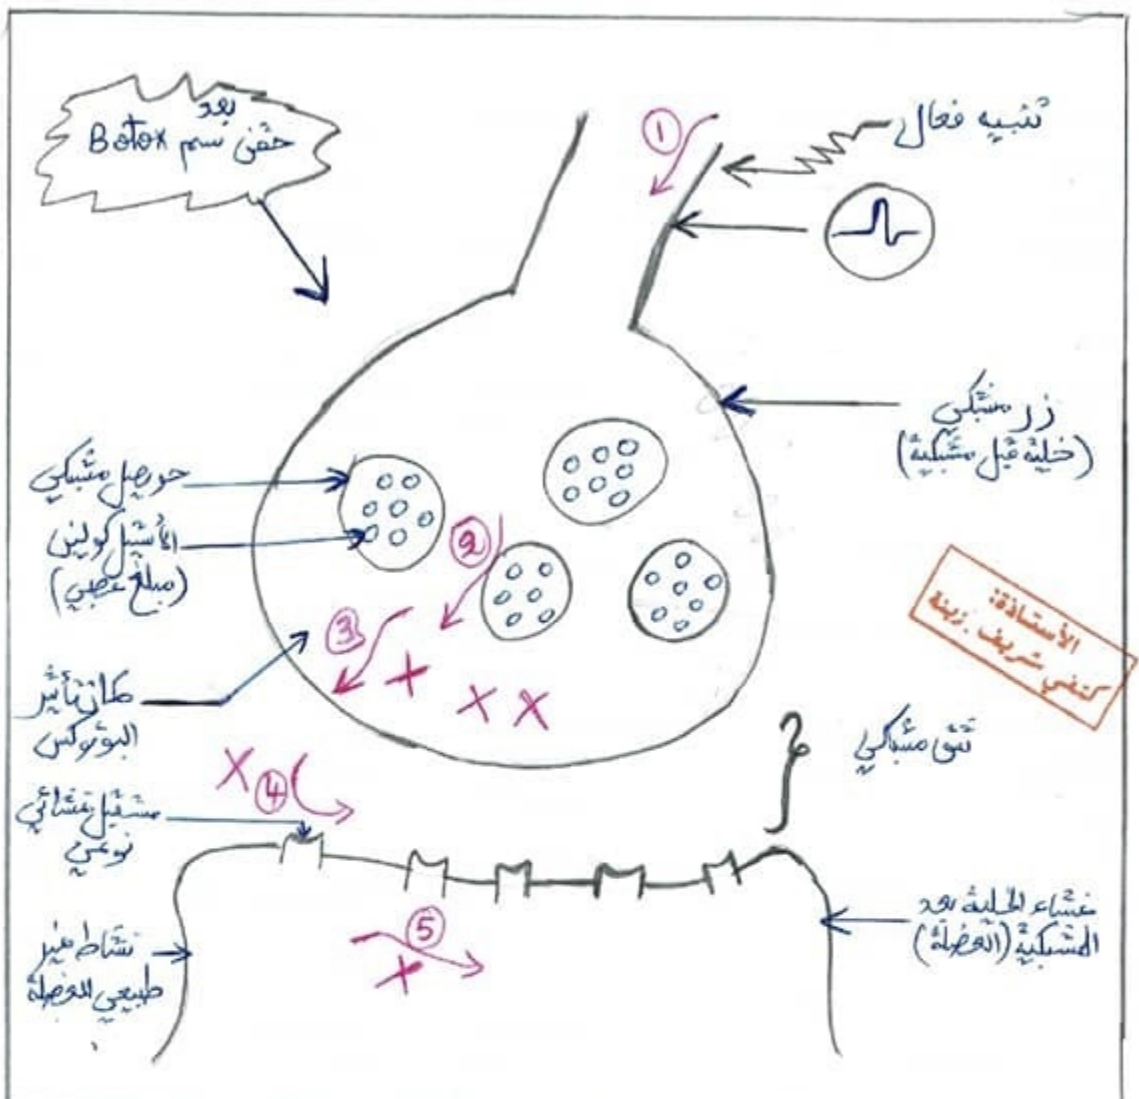 بعد
حقن سم Botox
①
تنبيه فعال
زر مشبكي
(خلية قبل مشبكية)
حويصل مشبكي
الأستيل كولين
(مبلغ عصبي)
②
③
الأستاذة:
كتفي شريف زينة
مكان تأثير
البوتوكس
شق مشبكي
④
مستقبل غشائي
نوعي
⑤
غشاء الخلية بعد
المشبكية (العضلة)
نشاط غير
طبيعي للعضلة